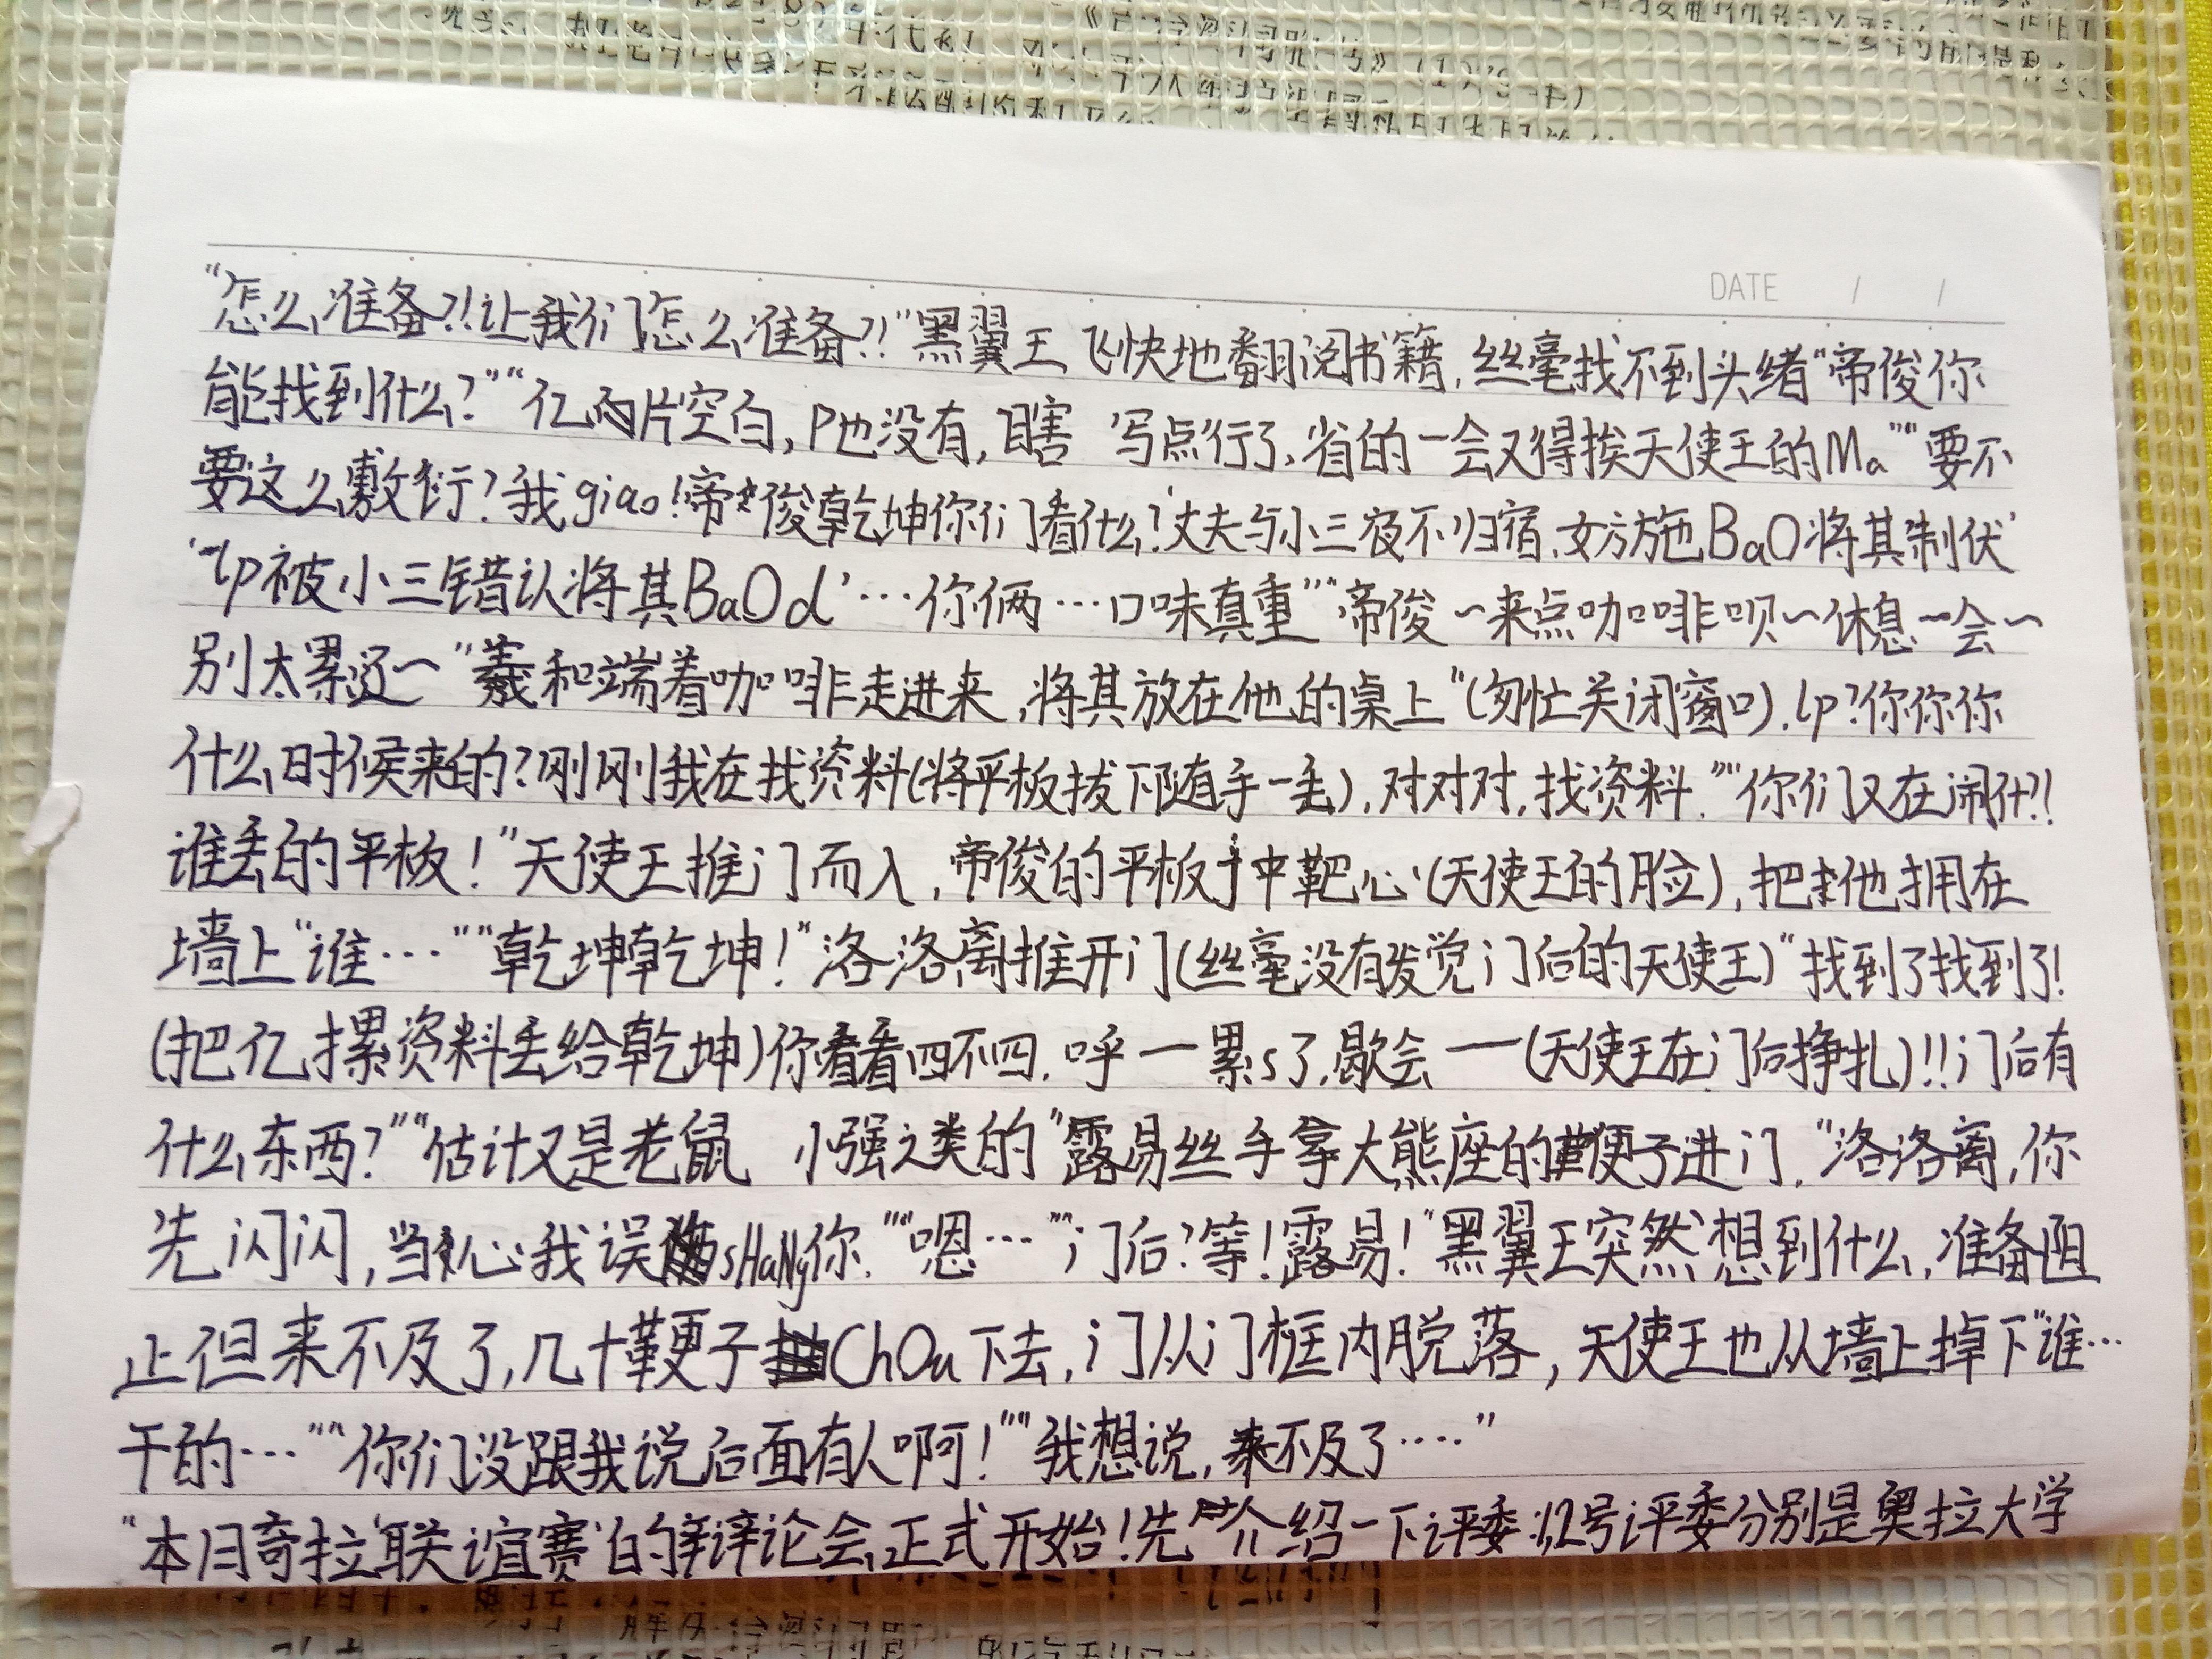 DATE / /
“怎么准备?!让我们怎么准备?!”黑翼王飞快地翻阅书籍,丝毫找不到头绪“帝俊你
能找到什么?”“亿片空白,P也没有,瞎写点行了,省的一会又得挨天使王的Ma”“要不
要这么敷衍?我giao!帝俊乾坤你们看什么?‘丈夫与小三夜不归宿,女方施BaO将其制伏’
‘lp被小三错认将其BaOd’…你俩…口味真重”“帝俊~来点咖啡呗~休息一会~
别太累~”羲和端着咖啡走进来,将其放在他的桌上“(匆忙关闭窗口).lp?你你你
什么时候来的?刚刚我在找资料(将平板拔下随手一丢),对对对,找资料.”“你们又在闹什?!
谁丢的平板!”天使王推门而入,帝俊的平板中靶心(天使王的脸),把他拥在
墙上“谁…”“乾坤乾坤!”洛洛离推开门(丝毫没有发觉门后的天使王)“找到了找到了!
(把亿摞资料丢给乾坤)你看看四不四.呼一累s了,歇会——(天使王在门后挣扎)!!门后有
什么东西?”“估计又是老鼠 小强之类的”露易丝手拿大熊座的鞭子进门,“洛洛离,你
先闪闪,当心我误sHaNg你.”“嗯…”“门后?等!露易!”黑翼王突然想到什么,准备阻
止但来不及了,几十鞭子ChOu下去,门从门框内脱落,天使王也从墙上掉下“谁…
干的…”“你们没跟我说后面有人啊!”“我想说,来不及了….”
“本月奇拉‘联谊赛’的辩论会正式开始!先介绍一下评委:1,2号评委分别是奥拉大学